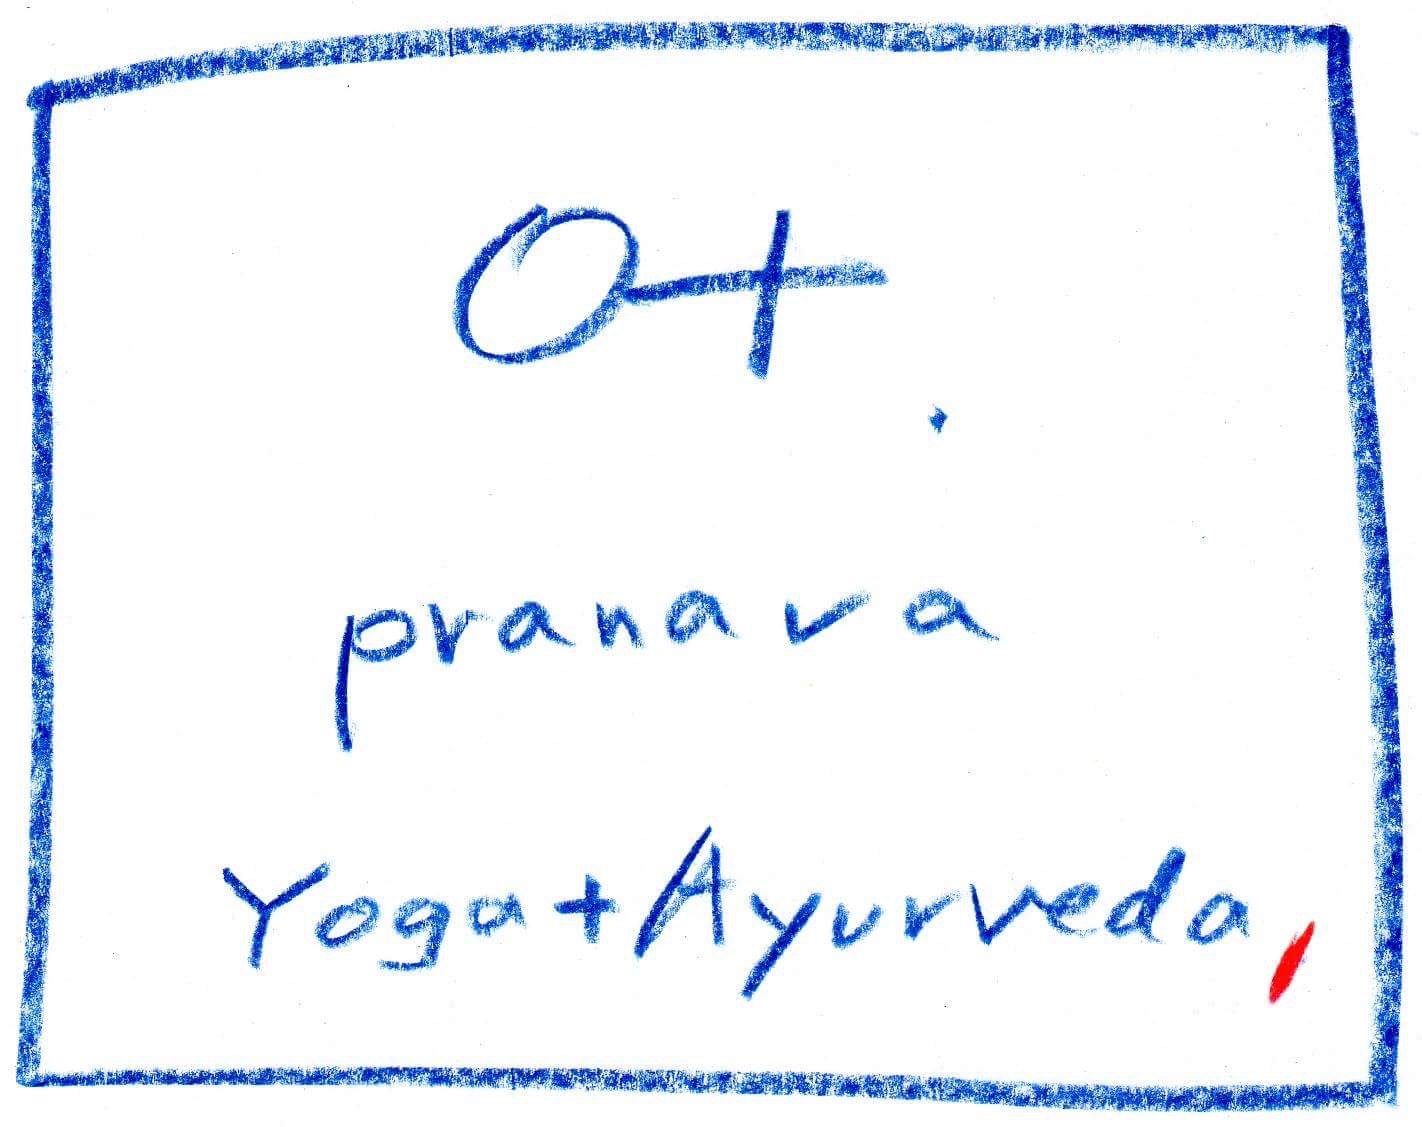 pranava
Yoga+Ayurveda,